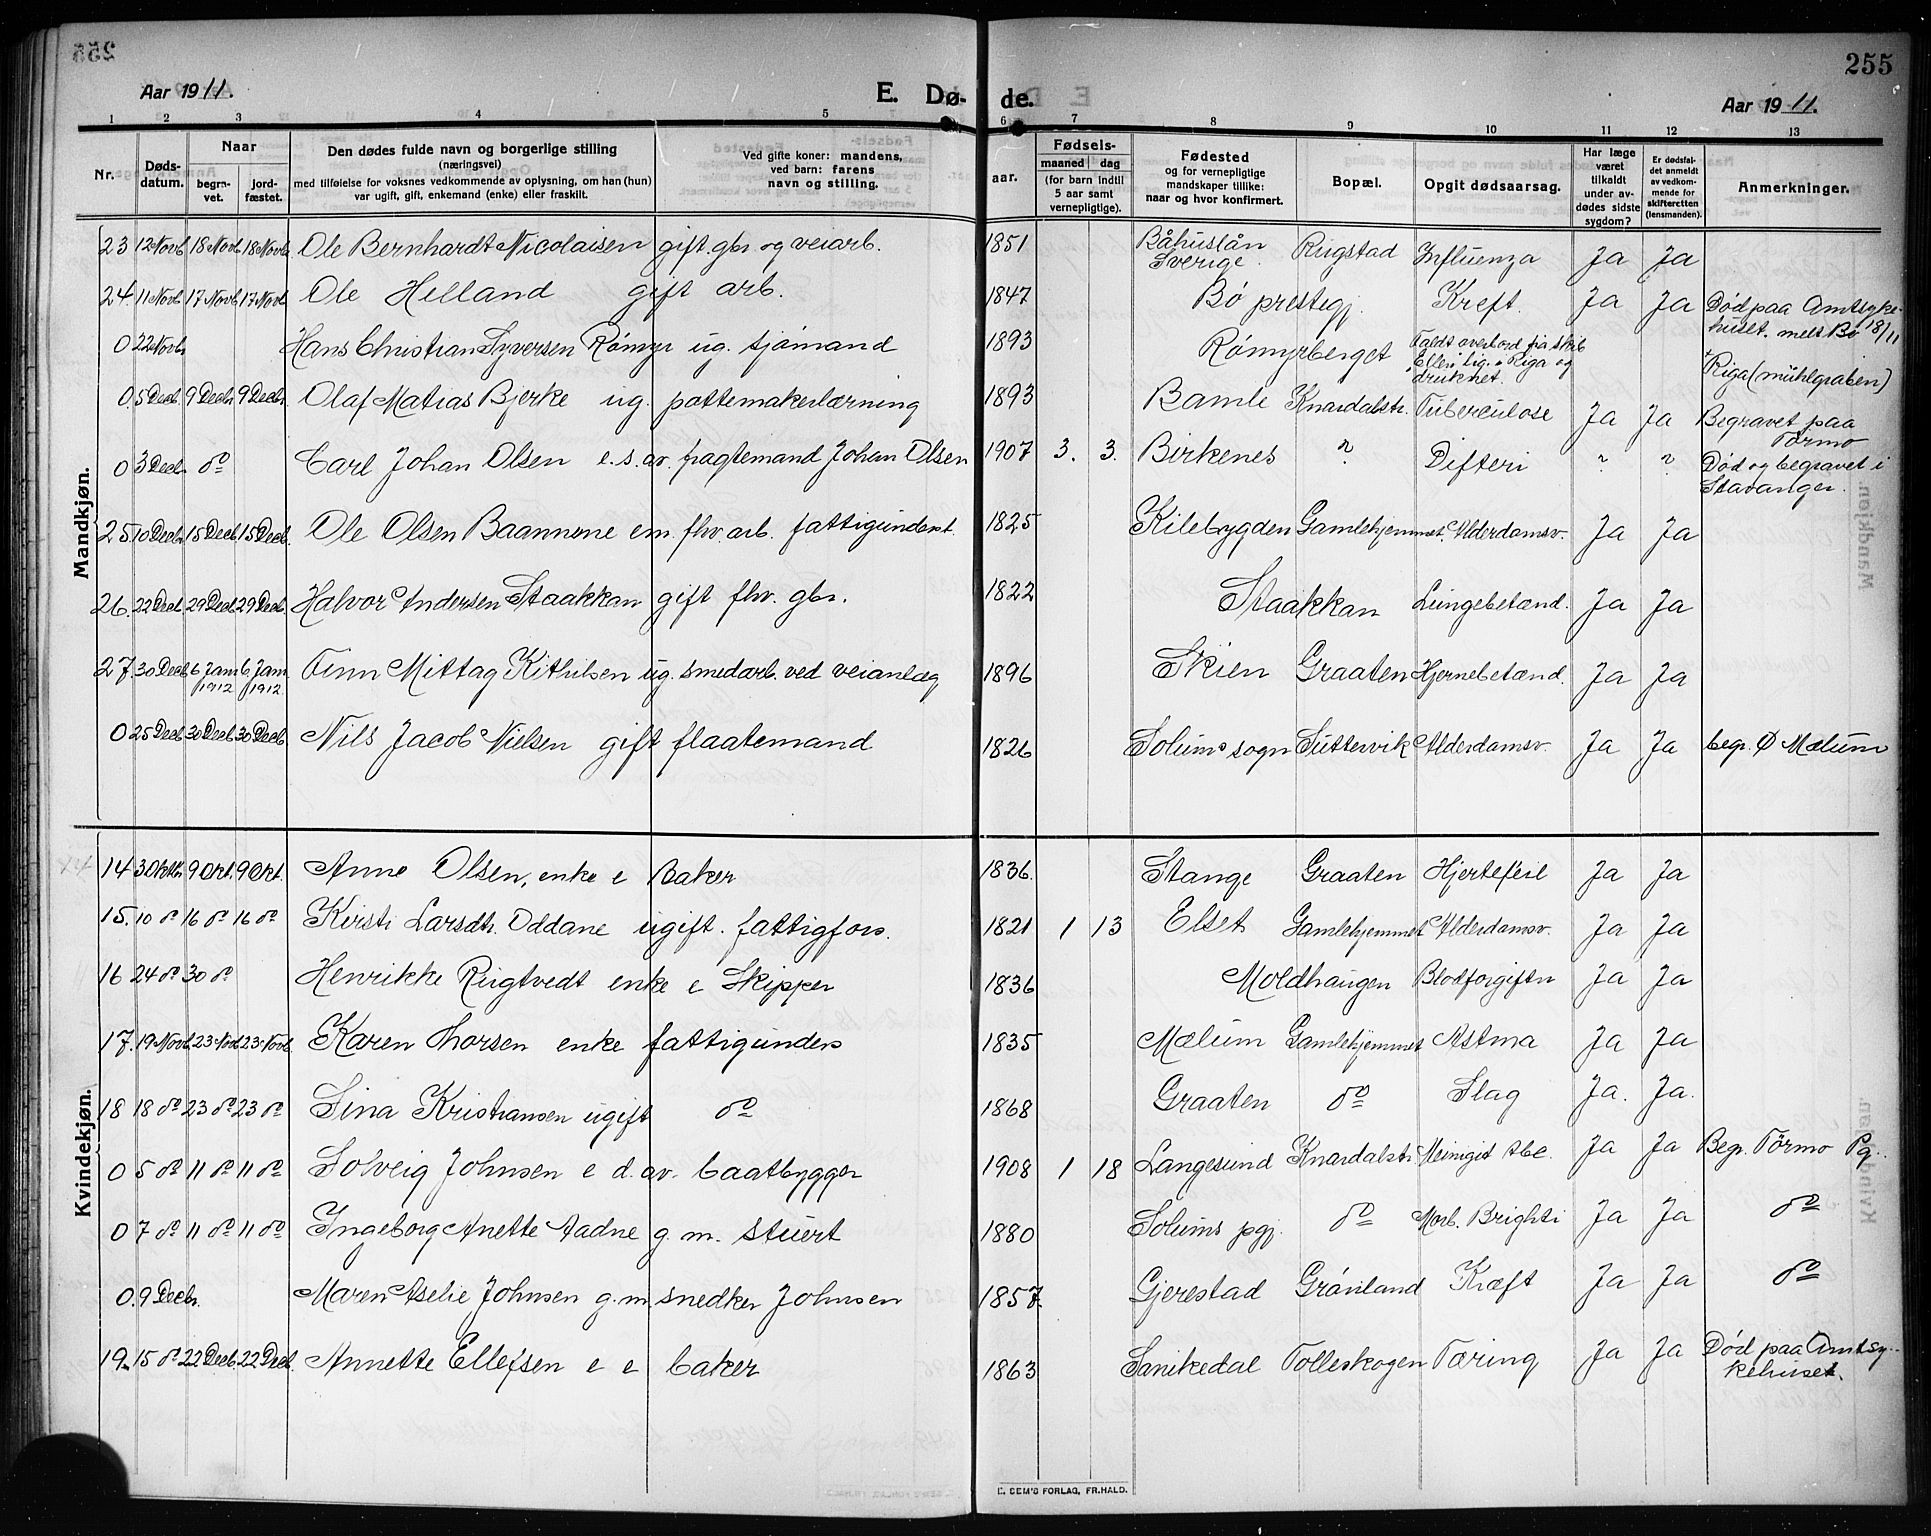 255
Aar 1911.
E. Dø- de.
Aar 1911.
1 2 3 4 5 6 7 8 9 10 11 12 13
Nr.
Dødsdatum.
Naar
begravet.
jordfæstet.
Den dødes fulde navn og borgerlige stilling
(næringsvei)
med tilføielse for voksnes vedkommende av oplysning, om han (hun)
var ugift, gift, enkemand (enke) eller fraskilt.
Ved gifte koner: mandens,
ved barn: farens
navn og stilling.
aar.
Fødsels-
maaned dag
(for barn indtil
5 aar samt
vernepligtige).
Fødested
og for vernepligtige
mandskaper tillike:
naar og hvor konfirmert.
Bopæl.
Opgit dødsaarsag.
Har læge
været
tilkaldt
under avdødes
sidste
sygdom?
Er dødsfaldet
anmeldt
av vedkommende
for
skifteretten
(lensmanden).
Anmerkninger.
Mandkjøn.
23 12 Novb. 18 Novb. 18 Novb. Ole Bernhardt Nicolaisen gift gbr og veiarb. 1851 Båhuslån Sverige Rugstad Influenza Ja Ja
24. 11 Novb. 17 Novb. 17 Novb. Ole Helland gift arb. 1847 Bø prestegj. Kreft. Ja Ja Død paa Amtsykehuset. melt Bø 18/11
0 22 Novb. Hans Christian Syversen Rømyr ug. sjømand 1893 Rømyrberget Faldt overbord fra skib "Ellen" lig. v. Riga og druknet. Riga (mühlgraben)
0. 5 Decbr. 9 Decbr. 9 Decbr. Olaf Matias Bjerke ug. pottemakerlærning 1893 Bamle Knardalstr. Tuberculose Ja Ja Begravet paa Tørmo
0 3 Decbr. do Carl Johan Olsen e.s.av. fragtemand Johan Olsen 1907 3. 3. Birkenes ? Difteri ? ? Død og begravet i Stavanger.
25. 10 Decbr. 15 Decb. 15 Decb. Ole Olsen Baannene em. fhv. arb. fattigunderst. 1825 Kilebygden Gamlehjemmet. Alderdomsv. Ja Ja
26. 22 Decb. 29 Decb. 29 Decb. Halvor Andersen Staakkan gift fhv. gbr. 1822 Staakkan Lungebetænd. Ja Ja
27. 30 Decb. 6 Jan 1912 6 Jan 1912 Finn Mittag Kittilsen ug. smedarb. ved veianlæg 1896 Skien Graaten Hjernebetænd. Ja Ja
0 25 Decb. 30 Decb. 30 Decb. Nils Jacob Nielsen gift flaatemand 1826 Solums sogn Suttervik Alderdomsv. Ja Ja begr. Ø Mælum
Kvindekjøn.
14 3 Oktbr. 9 Okt. 9 Okt. Anne Olsen, enke e Baker 1836. Stange Graaten Hjertefeil Ja Ja
15. 10 do 16 do 16 do Kirsti Larsdtr. Oddane ugift. fattigfors. 1821 1 13 Elset Gamlehjemmet Alderdomsv. Ja Ja
16 24 do 30 do Henrikke Rugtvedt enke e Skipper 1836 Moldhaugen Blodforgiftn Ja Ja
17. 19 Novb. 23 Novb. 23 Novb. Karen Thorsen enke fattigunders 1835 Mælum Gamlehjemmet Astma Ja Ja
18 18 do 23 do 23 do Sina Kristiansen ugift do 1868 Graaten do Slag Ja. Ja.
0 5 do 11 do 11 do Solveig Johnsen e.d.av. baatbygger 1908 1 18 Langesund Knardalstr. Meningit tbc. Ja Ja Begr. Tørmo Pg.
0 7 do 11 do 11 do Ingeborg Anette Aadne g.m. stuert 1880 Solums pgj. do Morb. Brighti Ja Ja do
0. 9 Decbr. Maren Aselie Johnsen g.m. snedker Johnsen 1857. Gjerestad Grønland Kræft Ja Ja do
19. 15 do 22 Decb. 22 Decb. Annette Ellefsen e e baker 1863 Sanikedal Folleskogen Tæring Ja Ja Død paa Amtsykehuset.
E. SEM'S FORLAG, FR.HALD.